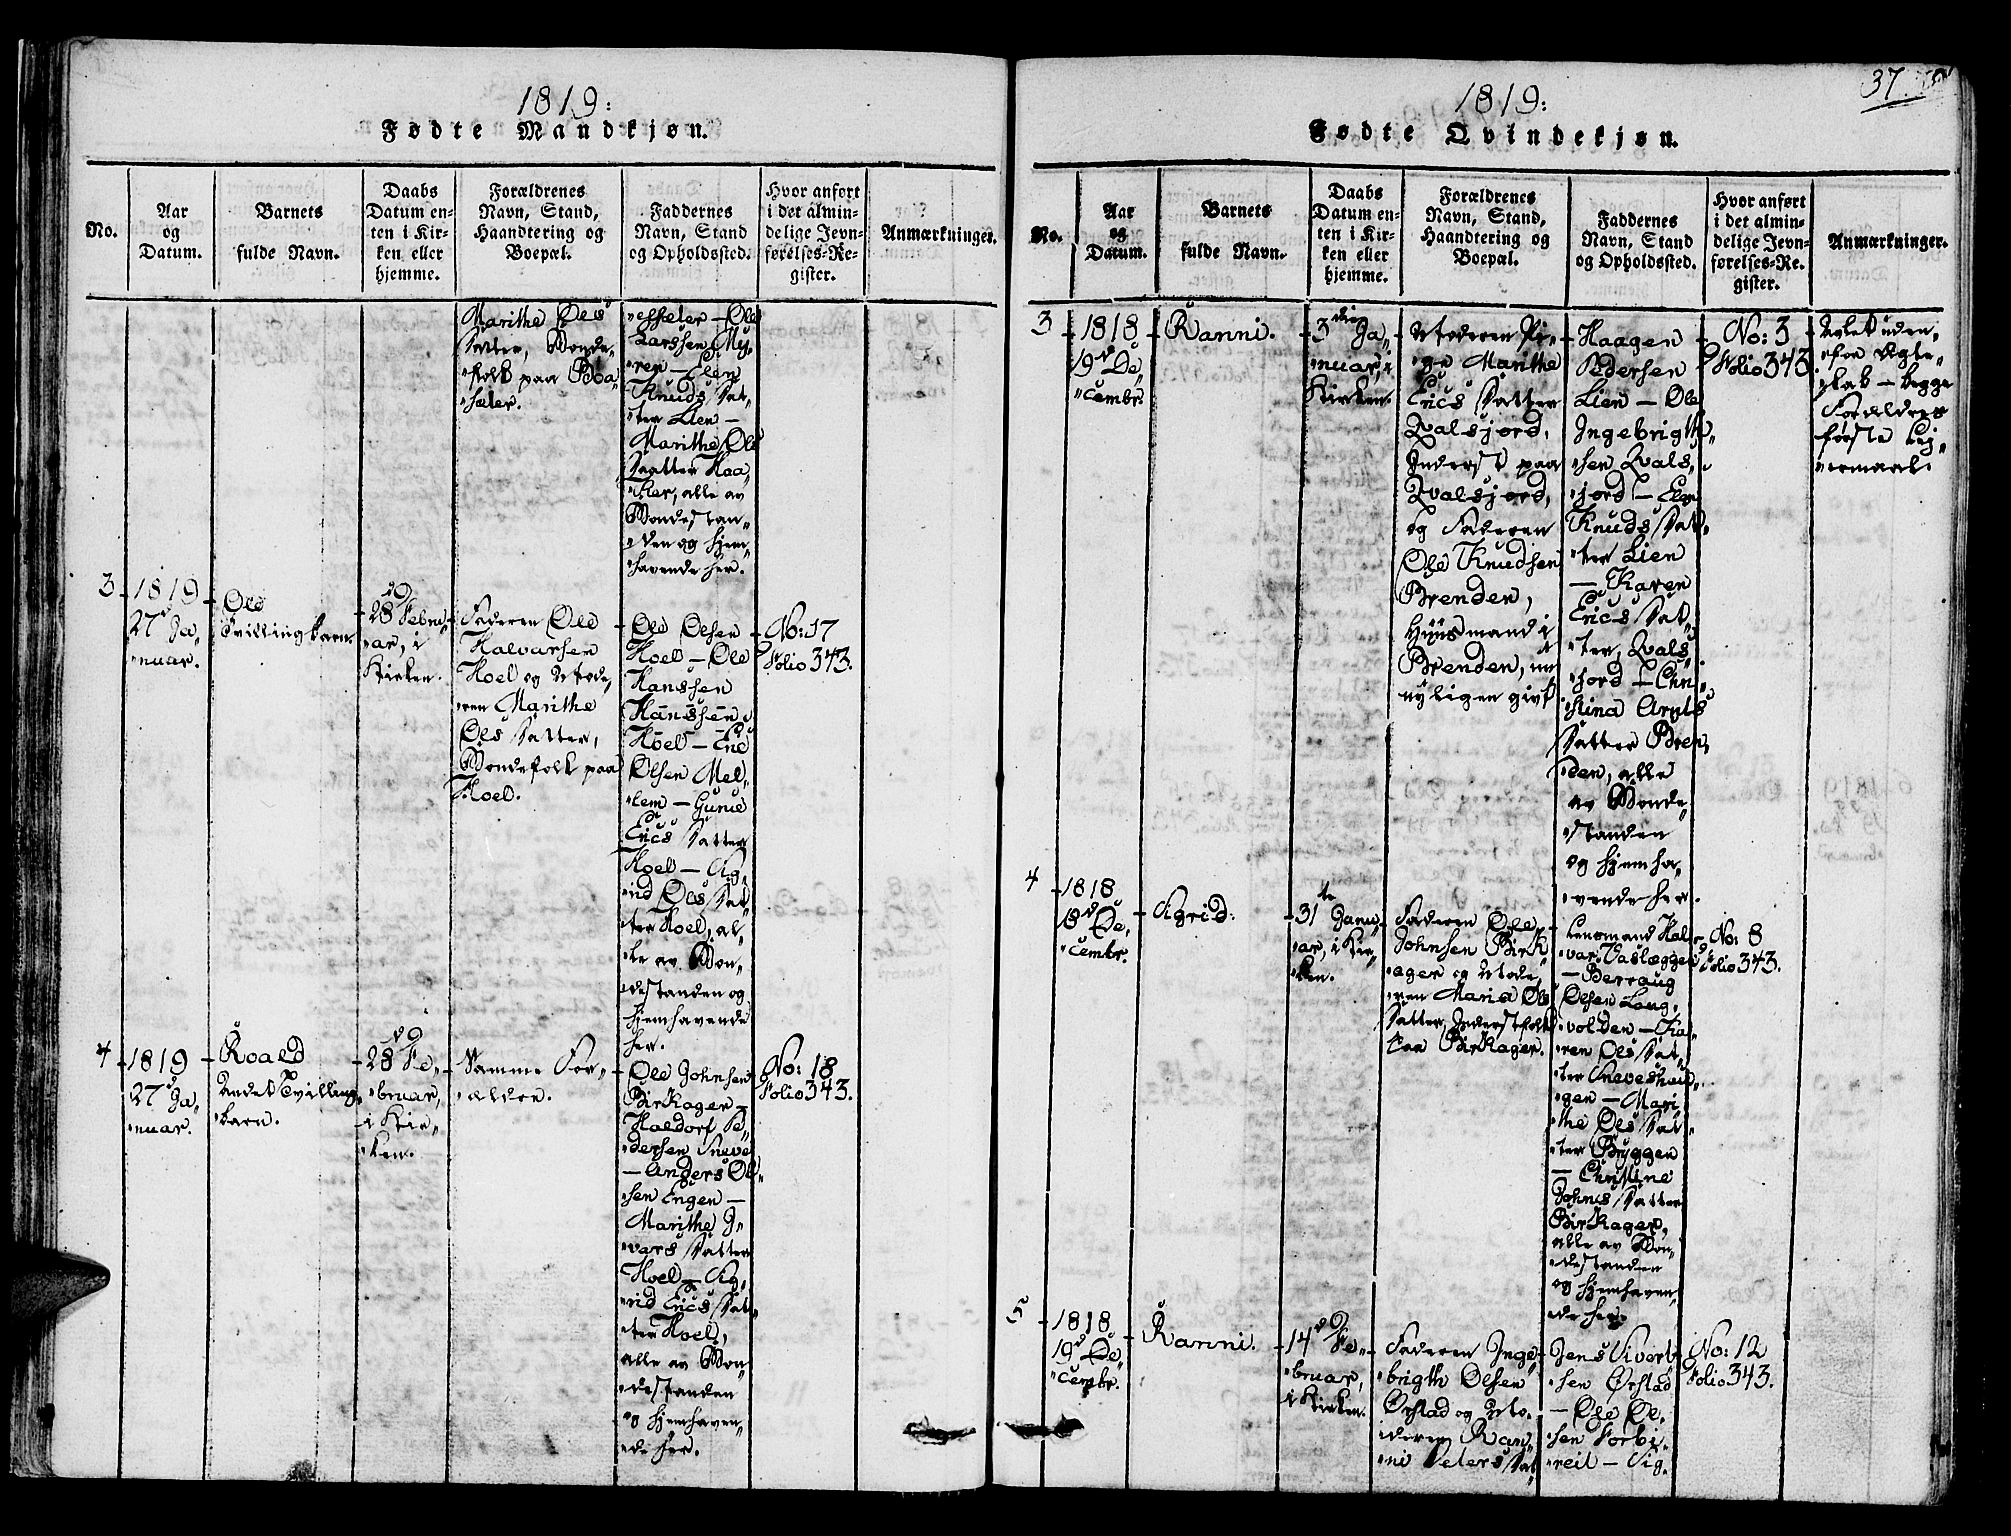 1819:
Fødte Mandkjøn.
No.
Aar
og
Datum.
Barnets
fulde Navn.
Daabs
Datum en-
ten i Kir-
ken eller
hjemme.
Forældrenes
Navn, Stand,
Haandtering og
Boepæl.
Faddernes
Navn, Stand
og Opholdssted.
Hvor anført
i det almin-
delige Jevn-
førelses-Re-
gister.
Anmærkninger.
Marithe Ols
Datter, Bonde-
folk paa Boa-
sæter.
Ole
Larssen My-
ren — Elen
Knuds Dat-
ter Lien —
Marithe Ols
Datter Haa-
ker, alle av
Bondestan-
den og hjem-
havende her.
3
1819
27d Ja-
nuar.
Ole
Tvillingbarn.
28d Febru-
ar, i
Kirken.
Faderen Ole
Halvarsen
Hoel og Mode-
ren Marithe
Ols Datter,
Bondefolk paa
Hoel.
Ole Olsen
Hoel — Ole
Hanssen
Hanssen
Hoel — Ene
Olsen Mel-
lem — Gurue
Erics Datter
Hoel — Sig-
rid Ols Dat-
ter Hoel, al-
le av Bon-
destanden og
hjemhavende
her.
No: 17
Folio 343.
4
1819
27d Ja-
nuar.
Roald
Andet Tvilling-
barn.
28d Fe-
bruar,
i Kir-
ken.
Samme For-
ældre.
Ole Johnsen
Birkager —
Haldorf Pe-
dersen Sneve
— Anders Ol-
sen Engen —
Marithe I-
vars Datter
Hoel — Sig-
rid Erics Dat-
ter Hoel,
alle av Bon-
destanden
og hjemhaven-
de her.
No: 18
Folio 343.
37
1819:
Fødte Qvindekjøn.
No.
Aar
og
Datum.
Barnets
fulde Navn.
Daabs
Datum en-
ten i Kir-
ken eller
hjemme.
Forældrenes
Navn, Stand,
Haandtering og
Boepæl.
Faddernes
Navn, Stand
og Opholdssted.
Hvor anført
i det almin-
delige Jevn-
førelses-Re-
gister.
Anmærkninger.
3
1818
19d De-
cembr.
Ranni.
3die Ja-
nuar, i
Kirken.
Moderen Pi-
ge Marithe
Erics Datter
Qvalsjord,
Inderst paa
Qvalsjord,
og Faderen
Ole Knudsen
Brenden,
Huusmand i
Brenden, nu
nyligen givt
Haagen
Pedersen
Lien — Ole
Ingebrigth-
sen Qvals-
jord — Elen
Knuds Dat-
ter Lien
— Karen
Erics Dat-
ter, Qvals-
jord — Chri-
stina Arnts
Datter Bren-
den, alle
av Bonde-
standen
og hjemha-
vende her.
No: 3
Folio 343
Avlet uden-
for Ægte-
skab — begge
Forældres
første Lej-
ermaal.
4
1818
18d De-
cembr.
Sigrid.
31te Janu-
ar, i Kir-
ken.
Faderen Ole
Johnsen Birk-
ager og Mode-
ren Maria Ols
Datter, Inderstfolk
paa Birkager.
Lensmand Hal-
var Vaslæggen
— Berraug
Olsen Laug-
volden — Ka-
ren Ols Dat-
ter Sneveshau-
gen — Mari-
the Ols Dat-
ter Byggen
— Christine
Johns Datter
Birkager,
alle av Bon-
destanden
og hjemhaven-
de her.
No: 8
Folio 343.
5
1818
19d De-
cembr.
Ranni.
14d Fe-
bruar,
i Kirken.
Faderen Inge-
brigth Olsen
Ørstad og Mo-
deren Ran-
ni Peters Dat-
Jens Sivert-
sen Ørstad
— Ole Ol-
sen
— Sig-
No: 12
Folio 343.